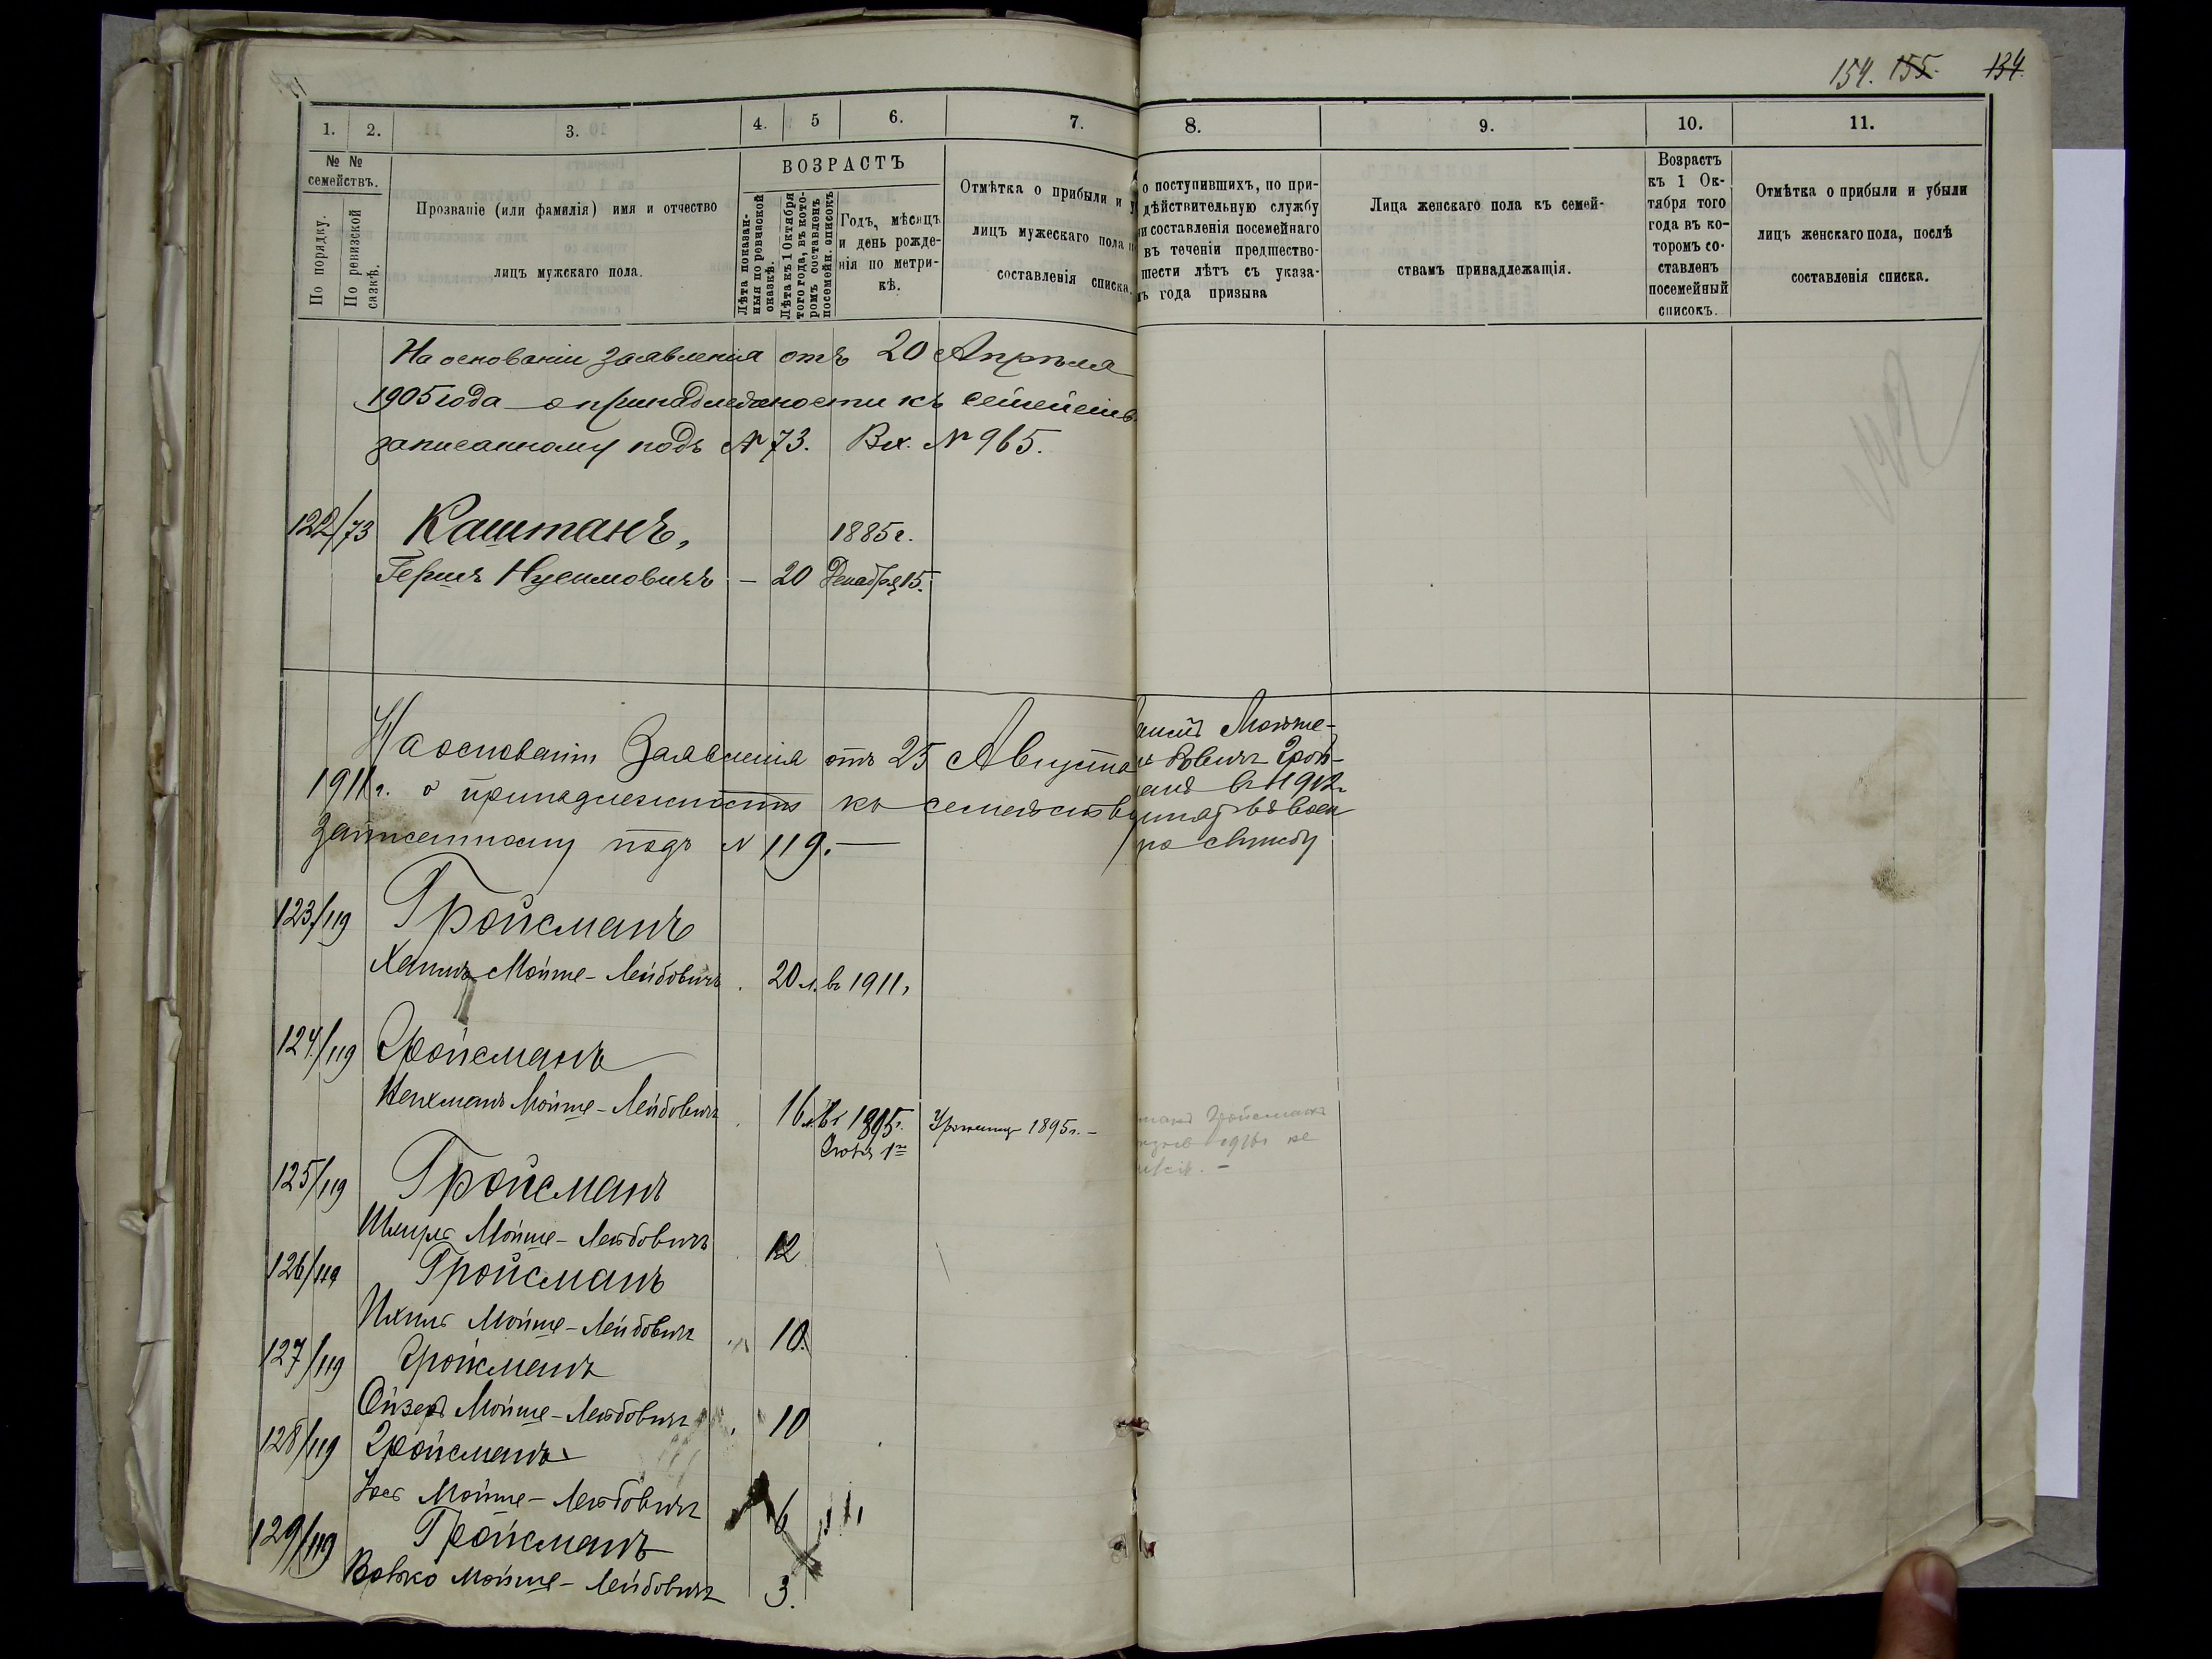 154. 155. 134.
1. 2. 3. 4. 5 6. 7. 8. 9. 10. 11.
№ № семействъ.
По порядку.
По ревизской сказкѣ.
Прозваніе (или фамилія) имя и отчество
лицъ мужскаго пола.
ВОЗРАСТЪ
Лѣта показан-
ныя по ревизской
сказкѣ.
Лѣта къ 1 Октября
того года, въ кото-
ромъ составленъ
посемейн. списокъ
Годъ, мѣсяцъ
и день рожде-
нія по метри-
кѣ.
Отмѣтка о прибыли и у
лицъ мужескаго пола п
составленія списка.
о поступившихъ, по при-
дѣйствительную службу
и составленія посемейнаго
въ теченіи предшество-
шести лѣтъ съ указа-
ъ года призыва
Лица женскаго пола къ семей-
ствамъ принадлежащія.
Возрастъ
къ 1 Ок-
тября того
года въ ко-
торомъ со-
ставленъ
посемейный
списокъ.
Отмѣтка о прибыли и убыли
лицъ женскаго пола, послѣ
составленія списка.
На основаніи Заявленія отъ 20 Апрѣля
1905 года о принадлежности къ семейств
записанному подъ № 73. Вх. № 965.
122/73 Каштанъ, 1885 г.
Гершъ Нусимовичъ — 20 Декабря 15.
На основаніи Заявленія отъ 25 Августа
1911 г. о принадлежности къ семейству
записанному подъ № 119.—
Мойше-
въ 1912
принятъ въ воен
ную службу
123/119 Гройсманъ
Хаимъ Мойше-Лейбовичъ . 20 л. въ 1911,
124/119 Гройсманъ
Мойше-Лейбовичъ . 16 л. 1895 г. 1го 1895 г. —
Гройсманъ
125/119 Гройсманъ
Шмуль Мойше-Лейбовичъ 12
126/119 Гройсманъ
Ихилъ Мойше-Лейбовичъ 10.
127/119 Гройсманъ
Ойзеръ Мойше-Лейбовичъ 10
128/119 Гройсманъ
Мойше-Лейбовичъ 6
129/119 Гройсманъ
Волько Мойше-Лейбовичъ 3.